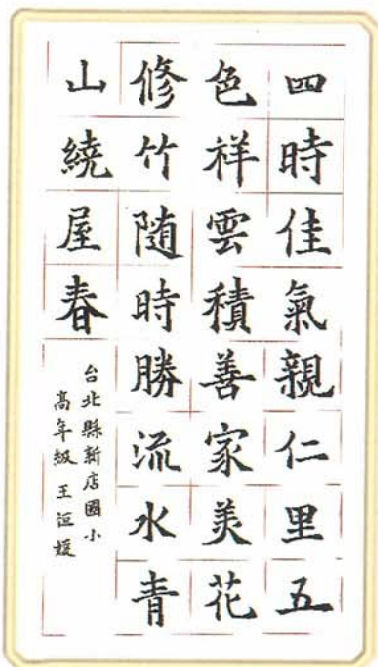 四時佳氣親仁里五
色祥雲積善家美花
修竹随時勝流水青
山繞屋春
台北縣新店國小
高年級王洹媛